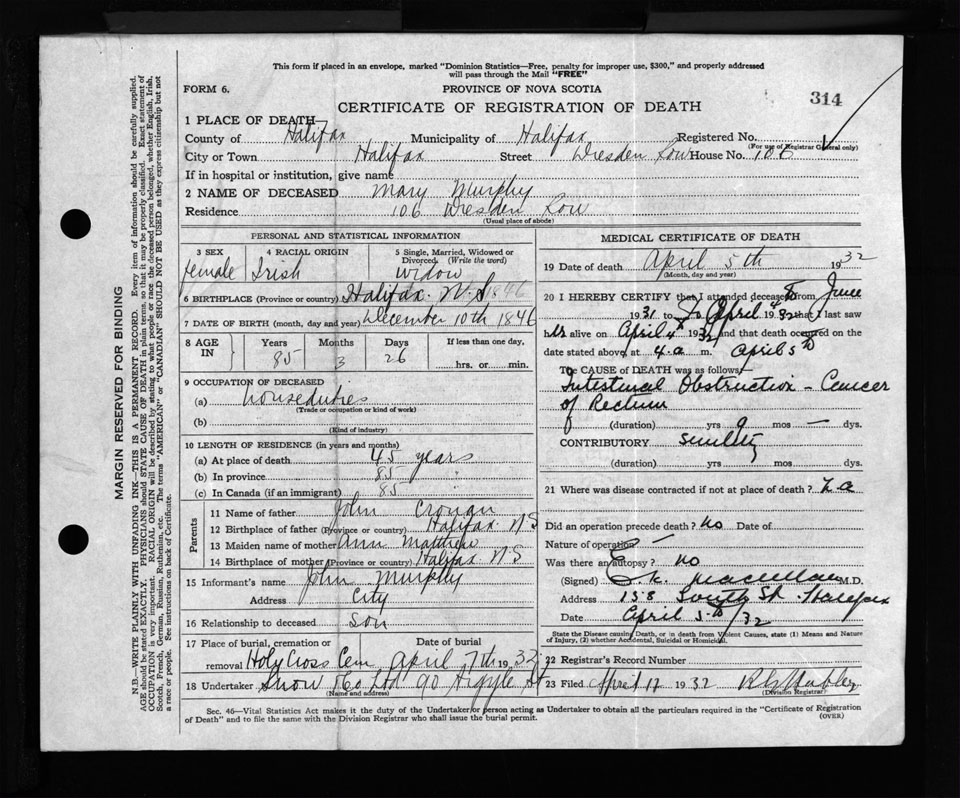 This form if placed in an envelope, marked "Dominion Statistics—Free, penalty for improper use, $300," and properly addressed
will pass through the Mail "FREE"
FORM 6.
PROVINCE OF NOVA SCOTIA
314
CERTIFICATE OF REGISTRATION OF DEATH
1 PLACE OF DEATH—
County of Halifax Municipality of Halifax Registered No.
(For use of Registrar General only)
City or Town Halifax Street Dresden Row House No. 106
If in hospital or institution, give name
2 NAME OF DECEASED Mary Murphy
Residence 106 Dresden Row
(Usual place of abode)
PERSONAL AND STATISTICAL INFORMATION
3 SEX 4 RACIAL ORIGIN 5 Single, Married, Widowed or Divorced. (Write the word)
female Irish widow
6 BIRTHPLACE (Province or country) Halifax. N.S. 1846
7 DATE OF BIRTH (month, day and year) December 10th 1846
8 AGE IN Years Months Days If less than one day,
85 3 26 hrs. or min.
9 OCCUPATION OF DECEASED
(a) houseduties
(Trade or occupation or kind of work)
(b)
(Kind of industry)
10 LENGTH OF RESIDENCE (in years and months)
(a) At place of death 45 years
(b) In province 85 "
(c) In Canada (if an immigrant) 85
Parents
11 Name of father John Cronan
12 Birthplace of father (Province or country) Halifax N S
13 Maiden name of mother Ann Matthew
14 Birthplace of mother (Province or country) Halifax N S
15 Informant's name John Murphy
Address City
16 Relationship to deceased son
17 Place of burial, cremation or removal Date of burial
Holy Cross Cem April 7th 1932
18 Undertaker Snow & Co Ltd 90 Argyle St
(Name and address)
MEDICAL CERTIFICATE OF DEATH
19 Date of death April 5th 1932
(Month, day and year)
20 I HEREBY CERTIFY that I attended deceased from June
1931 to April 4th 1932 that I last saw
her alive on April 4th 1932 and that death occurred on the
date stated above, at 4.a m. April 5th
The CAUSE OF DEATH was as follows:—
Intestinal Obstruction — Cancer
of Rectum
(duration) yrs 9 mos — dys.
CONTRIBUTORY Senility
(duration) yrs mos dys.
21 Where was disease contracted if not at place of death?
Did an operation precede death? No Date of
Nature of operation —
Was there an autopsy? No
(Signed) M.D.
Address 158 South St. Halifax
Date April 5th/32
State the Disease causing Death, or in death from Violent Causes, state (1) Means and Nature
of Injury, (2) whether Accidental, Suicidal or Homicidal.
22 Registrar's Record Number
23 Filed April 12 1932
(Division Registrar)
Sec. 46—Vital Statistics Act makes it the duty of the Undertaker or person acting as Undertaker to obtain all the particulars required in the "Certificate of Registration
of Death" and to file the same with the Division Registrar who shall issue the burial permit.
(OVER)
MARGIN RESERVED FOR BINDING
N.B.—WRITE PLAINLY WITH UNFADING INK—THIS IS A PERMANENT RECORD. Every item of information should be carefully supplied.
AGE should be stated EXACTLY. PHYSICIANS should STATE CAUSE OF DEATH in plain terms, so that it may be properly classified. Exact statement of
OCCUPATION is very important. RACIAL ORIGIN will be described by stating to what people or race the deceased person belonged, whether English, Irish,
Scotch, French, German, Russian, Ruthenian, etc. The terms "AMERICAN" or "CANADIAN" SHOULD NOT BE USED as they express citizenship but not
a race or people. See instructions on back of Certificate.